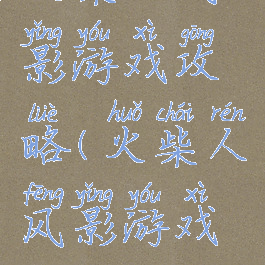 yǐng yóu xì gōng
影游戏攻
lüè huǒ chái rén
略(火柴人
fēng yǐng yóu xì
风影游戏